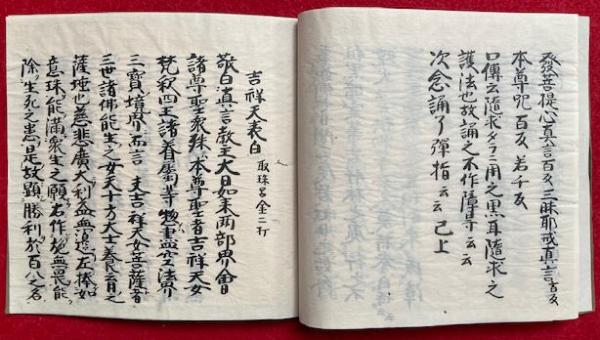 發菩提心真言百反三麻耶戒真言百反
本尊呪百反若千反
口傳云隨求タラニ用之黒耳隨求之
護法也故誦之不作障导云云
次念誦了彈指云云 已上
吉祥天表白 取珠呂金二打
敬白真言教主大日如来两部界會
諸尊聖衆殊本尊聖者吉祥天女
梵釈四王諸眷属等惣事盡空法界
三寶境界而言夫吉祥天女菩薩者
三世諸佛能生之女天十方大士養育之
薩埵也慈悲廣大利益無邊左捧如
意珠能満衆生之願右作施無畏能
除生死之患是故顕勝利於百八之名